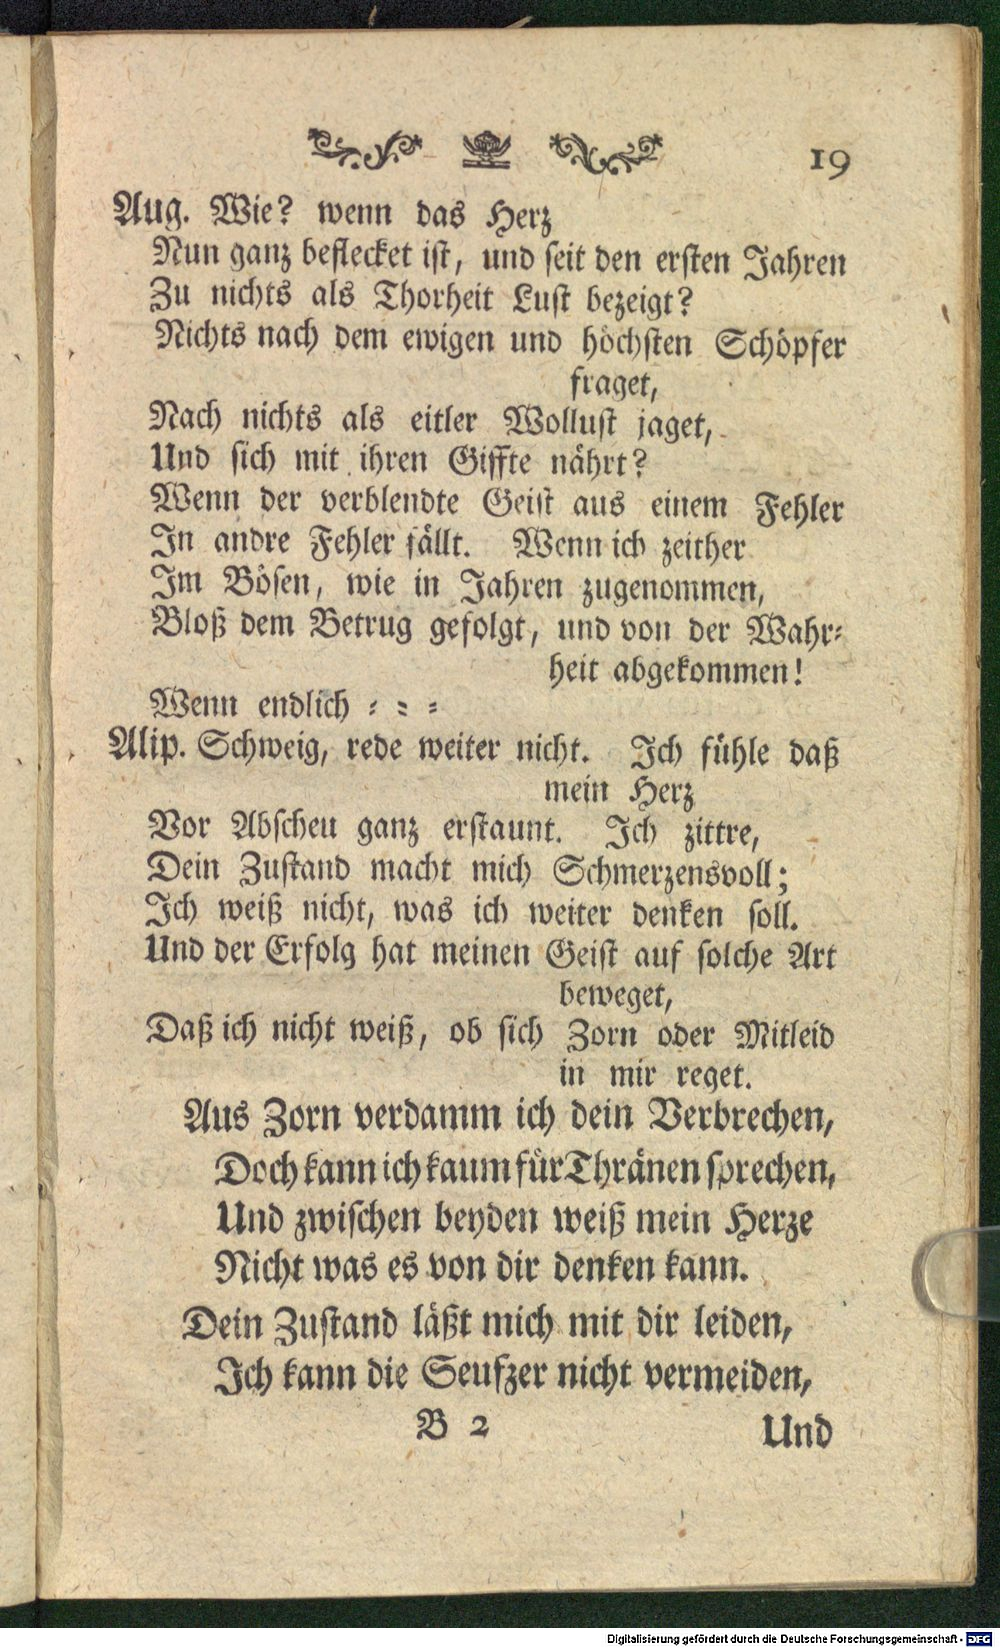 19
Aug. Wie? wenn das Herz
Nun ganz beflecket ist, und seit den ersten Jahren
Zu nichts als Thorheit Lust bezeigt?
Nichts nach dem ewigen und höchsten Schöpfer
fraget,
Nach nichts als eitler Wollust jaget,
Und sich mit ihren Giffte nährt?
Wenn der verblendte Geist aus einem Fehler
In andre Fehler fällt. Wenn ich zeither
Im Bösen, wie in Jahren zugenommen,
Bloß dem Betrug gefolgt, und von der Wahr⸗
heit abgekommen!
Wenn endlich ⸗ ⸗ ⸗
Alip. Schweig, rede weiter nicht. Ich fühle daß
mein Herz
Vor Abscheu ganz erstaunt. Ich zittre,
Dein Zustand macht mich Schmerzensvoll;
Ich weiß nicht, was ich weiter denken soll.
Und der Erfolg hat meinen Geist auf solche Art
beweget,
Daß ich nicht weiß, ob sich Zorn oder Mitleid
in mir reget.
Aus Zorn verdamm ich dein Verbrechen,
Doch kann ich kaum für Thränen sprechen,
Und zwischen beyden weiß mein Herze
Nicht was es von dir denken kann.
Dein Zustand läßt mich mit dir leiden,
Ich kann die Seufzer nicht vermeiden,
B 2 Und
Digitalisierung gefördert durch die Deutsche Forschungsgemeinschaft - DFG